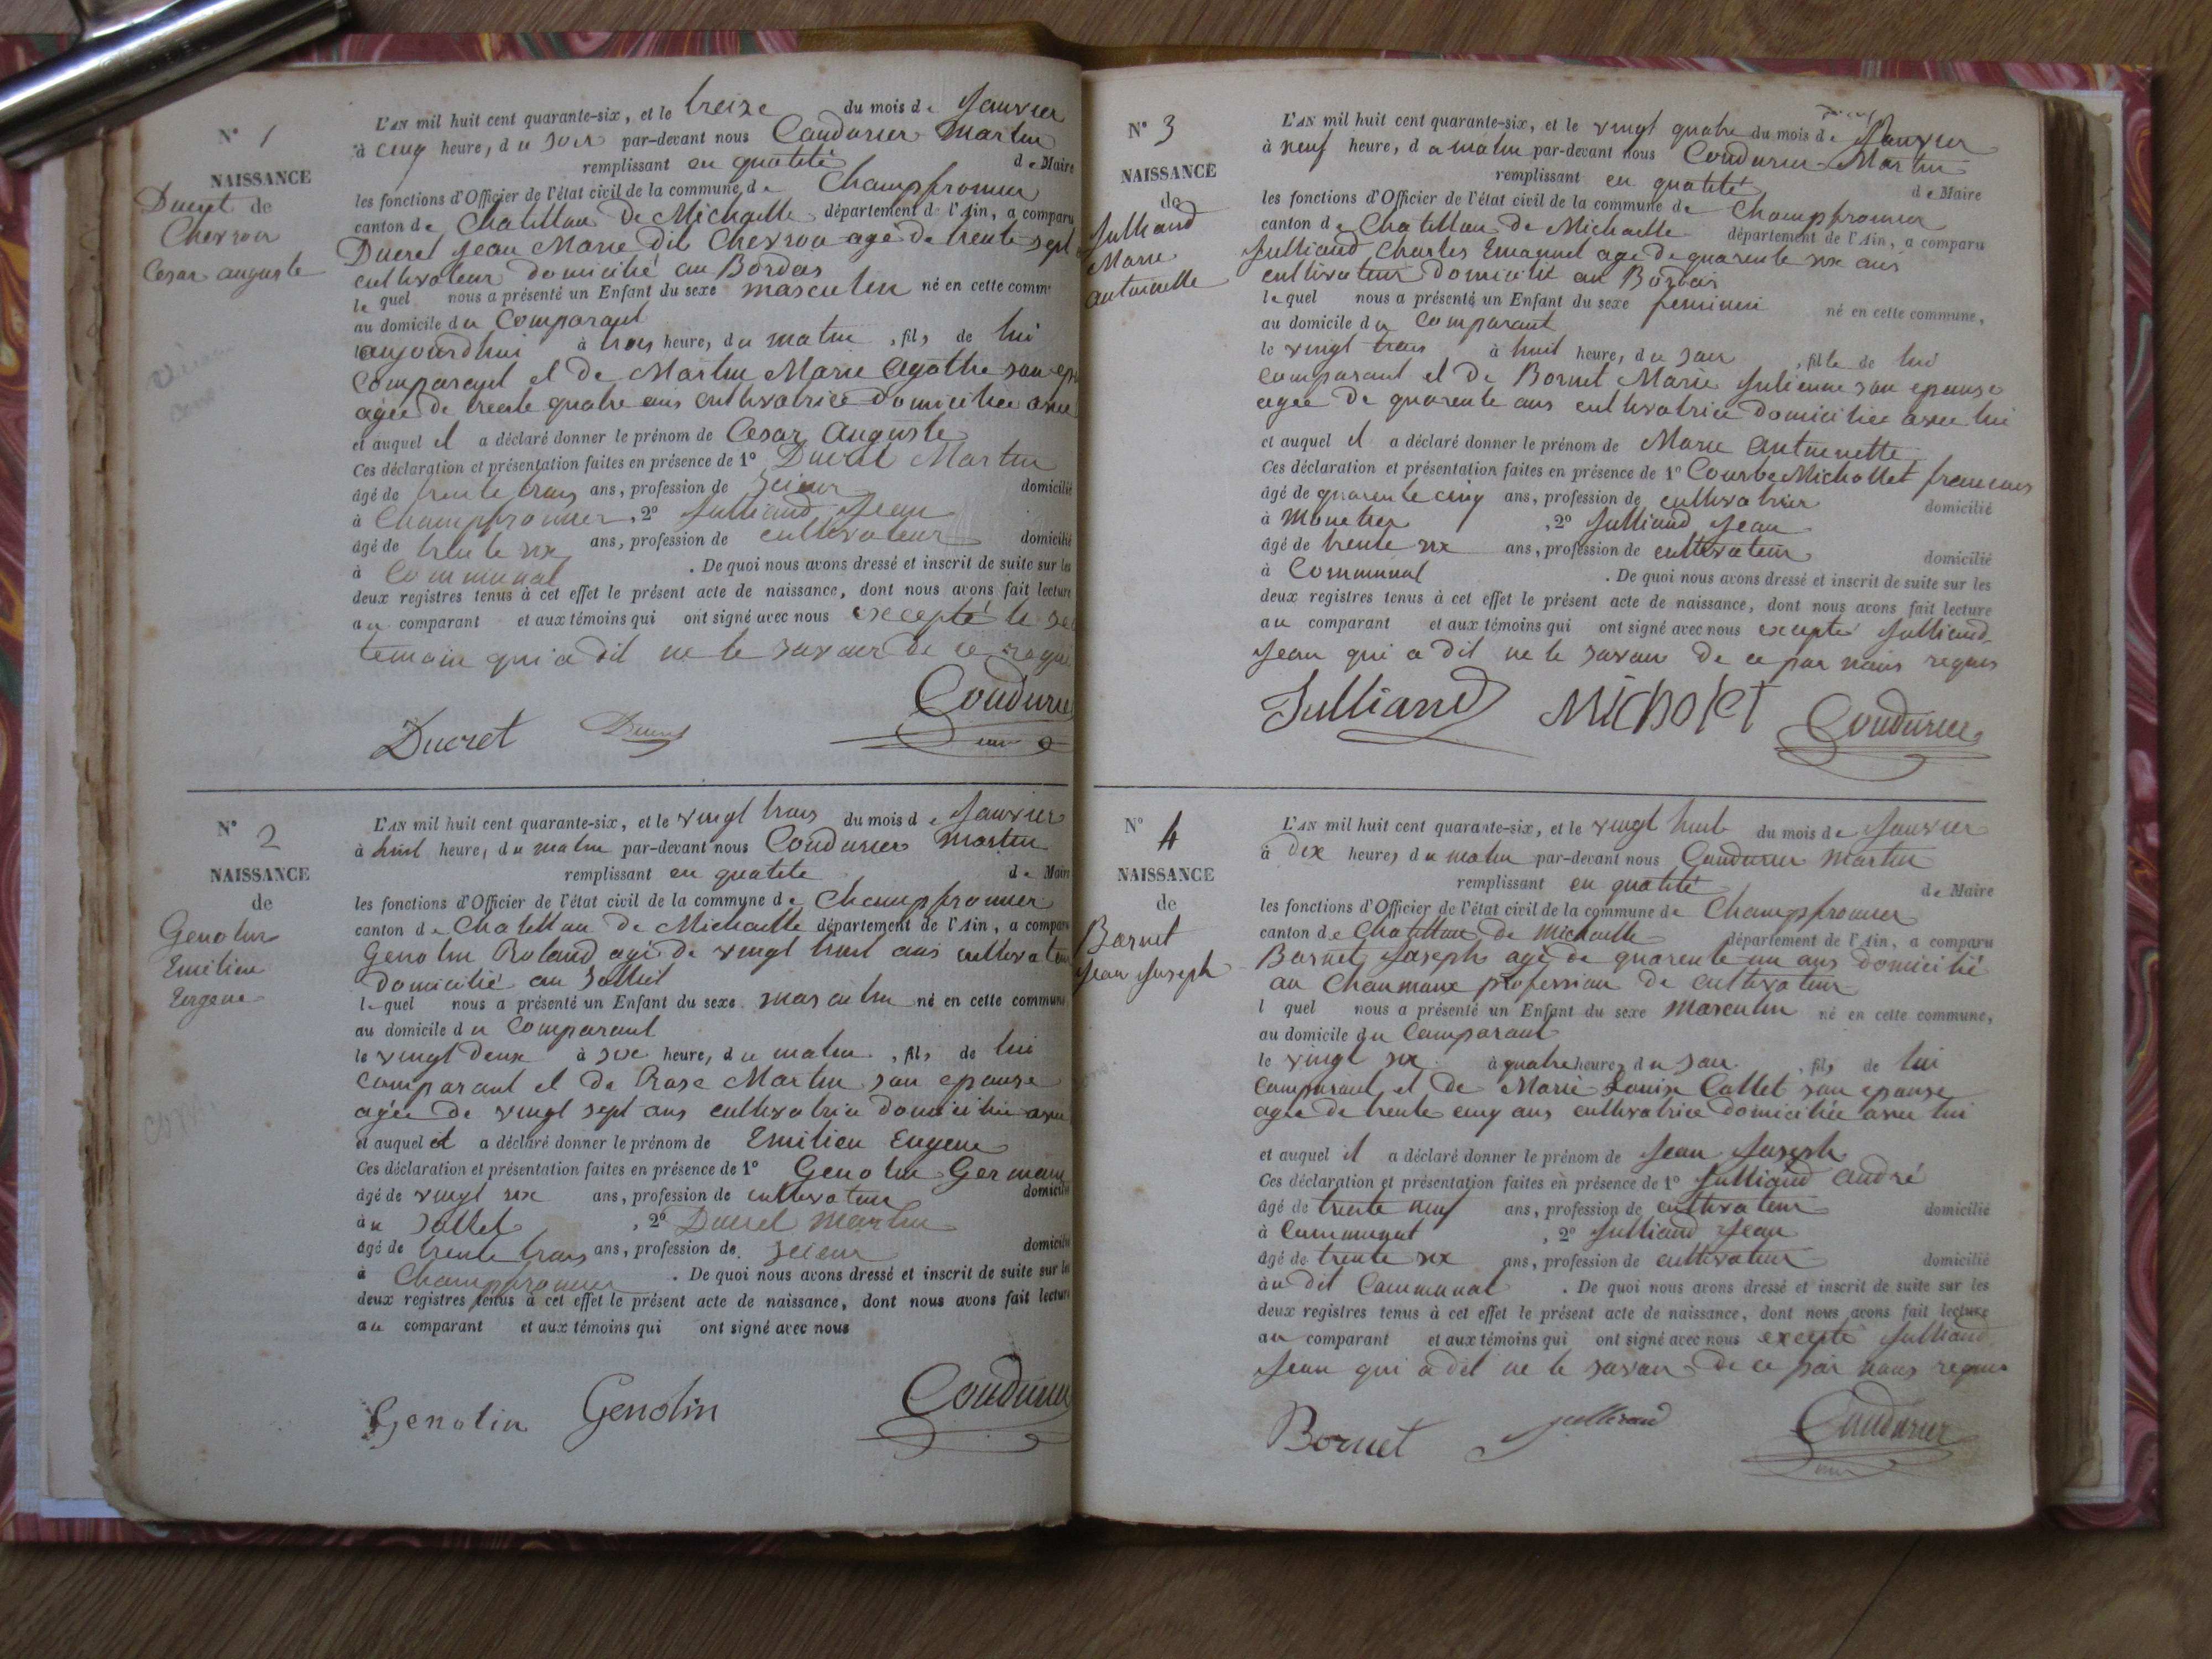 N° 1
NAISSANCE
Ducret de
Chevron
Cesar auguste
L'AN mil huit cent quarante-six, et le treize du mois de Janvier
à cinq heure, du soir par-devant nous Coudurier Martin
remplissant en qualité de Maire
les fonctions d'Officier de l'état civil de la commune de Champfromier
canton de Chatillon De Michaille département de l'Ain, a comparu
Ducret Jean Marie Dit Chevron agé De trente sept
cultivateur Domicilié au Bordas
le quel nous a présenté un Enfant du sexe masculin né en cette comm
au domicile du Comparant
aujourdhui à trois heure, du matin, fils de lui
Comparant et de Martin Marie Agathe son ep
agée de trente quatre ans cultivatrice Domiciliée avec
et auquel il a déclaré donner le prénom de Cesar Auguste
Ces déclaration et présentation faites en présence de 1° Ducret Martin
âgé de trente trois ans, profession de scieur domicilié
à Champfromier, 2° Julliand Jean
âgé de trente six ans, profession de cultivateur domicilié
à Communal. De quoi nous avons dressé et inscrit de suite sur les
deux registres tenus à cet effet le présent acte de naissance, dont nous avons fait lecture
au comparant et aux témoins qui ont signé avec nous excepté le
temoin qui a dit ne le savoir de ce
Coudurier
Ducret Ducret
N° 2
NAISSANCE
de
Genolin
Emilien
Eugene
L'AN mil huit cent quarante-six, et le vingt trois du mois de Janvier
à huit heure, du matin par-devant nous Coudurier Martin
remplissant en qualité de Maire
les fonctions d'Officier de l'état civil de la commune de Champfromier
canton de Chatillon De Michaille département de l'Ain, a comparu
Genolin Roland agé De vingt huit ans cultivateur
Domicilié au Solliet
le quel nous a présenté un Enfant du sexe masculin né en cette commune
au domicile du Comparant
le vingt Deux à six heure, du matin, fils de lui
Comparant et De Rose Martin son epouse
agée de vingt sept ans cultivatrice Domiciliée avec
et auquel il a déclaré donner le prénom de Emilien Eugene
Ces déclaration et présentation faites en présence de 1° Genolin Germain
âgé de vingt six ans, profession de cultivateur domicilié
au Sollet, 2° Ducret Martin
âgé de trente trois ans, profession de scieur domicilié
à Champfromier. De quoi nous avons dressé et inscrit de suite sur les
deux registres tenus à cet effet le présent acte de naissance, dont nous avons fait lecture
au comparant et aux témoins qui ont signé avec nous
Genolin Genolin Coudurier
N° 3
NAISSANCE
de
Julliand
Marie
Antoinette
L'AN mil huit cent quarante-six, et le vingt quatre du mois de Janvier
à neuf heure, du matin par-devant nous Coudurier Martin
remplissant en qualité de Maire
les fonctions d'Officier de l'état civil de la commune de Champfromier
canton de Chatillon De Michaille département de l'Ain, a comparu
Julliand Charles Emanuel agé De quarente six ans
cultivateur Domicilié au Bordas
le quel nous a présenté un Enfant du sexe feminin né en cette commune,
au domicile du Comparant
le vingt trois à huit heure, du soir, fille de lui
Comparant et De Bornet Marie Julienne son epouse
agée De quarente ans cultivatrice Domiciliée avec lui
et auquel il a déclaré donner le prénom de Marie Antoinette
Ces déclaration et présentation faites en présence de 1° Courbe Michollet francois
âgé de quarente cinq ans, profession de cultivateur domicilié
à Monetier, 2° Julliand Jean
âgé de trente six ans, profession de cultivateur domicilié
à Communal. De quoi nous avons dressé et inscrit de suite sur les
deux registres tenus à cet effet le présent acte de naissance, dont nous avons fait lecture
au comparant et aux témoins qui ont signé avec nous excepté Julliand
Jean qui a dit ne le savoir De ce par nous requis
Julliand Micholet Coudurier
N° 4
NAISSANCE
de
Bornet
Jean Joseph
L'AN mil huit cent quarante-six, et le vingt huit du mois de Janvier
à Dix heures du matin par-devant nous Coudurier Martin
remplissant en qualité de Maire
les fonctions d'Officier de l'état civil de la commune de Champfromier
canton de Chatillon de Michaille département de l'Ain, a comparu
Bornet Joseph agé de quarente un ans domicilié
au Chaumaux profession De cultivateur
l quel nous a présenté un Enfant du sexe Masculin né en cette commune,
au domicile du Comparant
le vingt six à quatre heures, du soir, fils de lui
Comparant et de Marie Louise Collet son epouse
agée de trente cinq ans cultivatrice Domiciliée avec lui
et auquel il a déclaré donner le prénom de Jean Joseph
Ces déclaration et présentation faites en présence de 1° Julliand André
âgé de trente neuf ans, profession de cultivateur domicilié
à Communal, 2° Julliand Jean
âgé de trente six ans, profession de cultivateur domicilié
au dit Communal. De quoi nous avons dressé et inscrit de suite sur les
deux registres tenus à cet effet le présent acte de naissance, dont nous avons fait lecture
au comparant et aux témoins qui ont signé avec nous excepté Julliand
Jean qui a dit ne le savoir De ce par nous requis
Bornet Julliand Coudurier